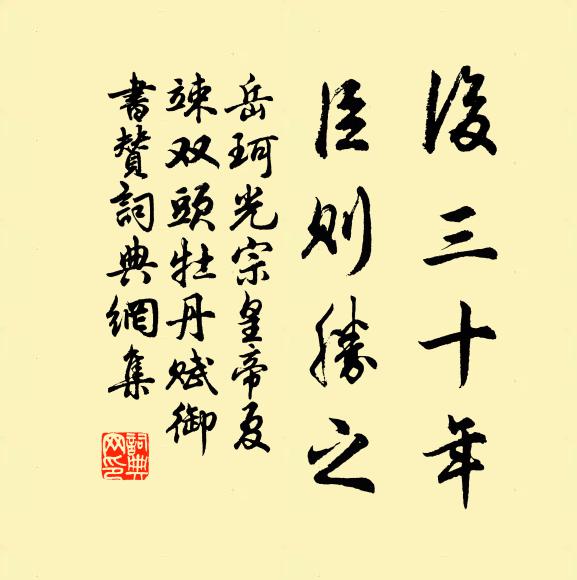 後三十年
臣則勝之
岳珂光宗皇帝夏
竦双頭牡丹賦御
書賛詞典網集
詞典網印